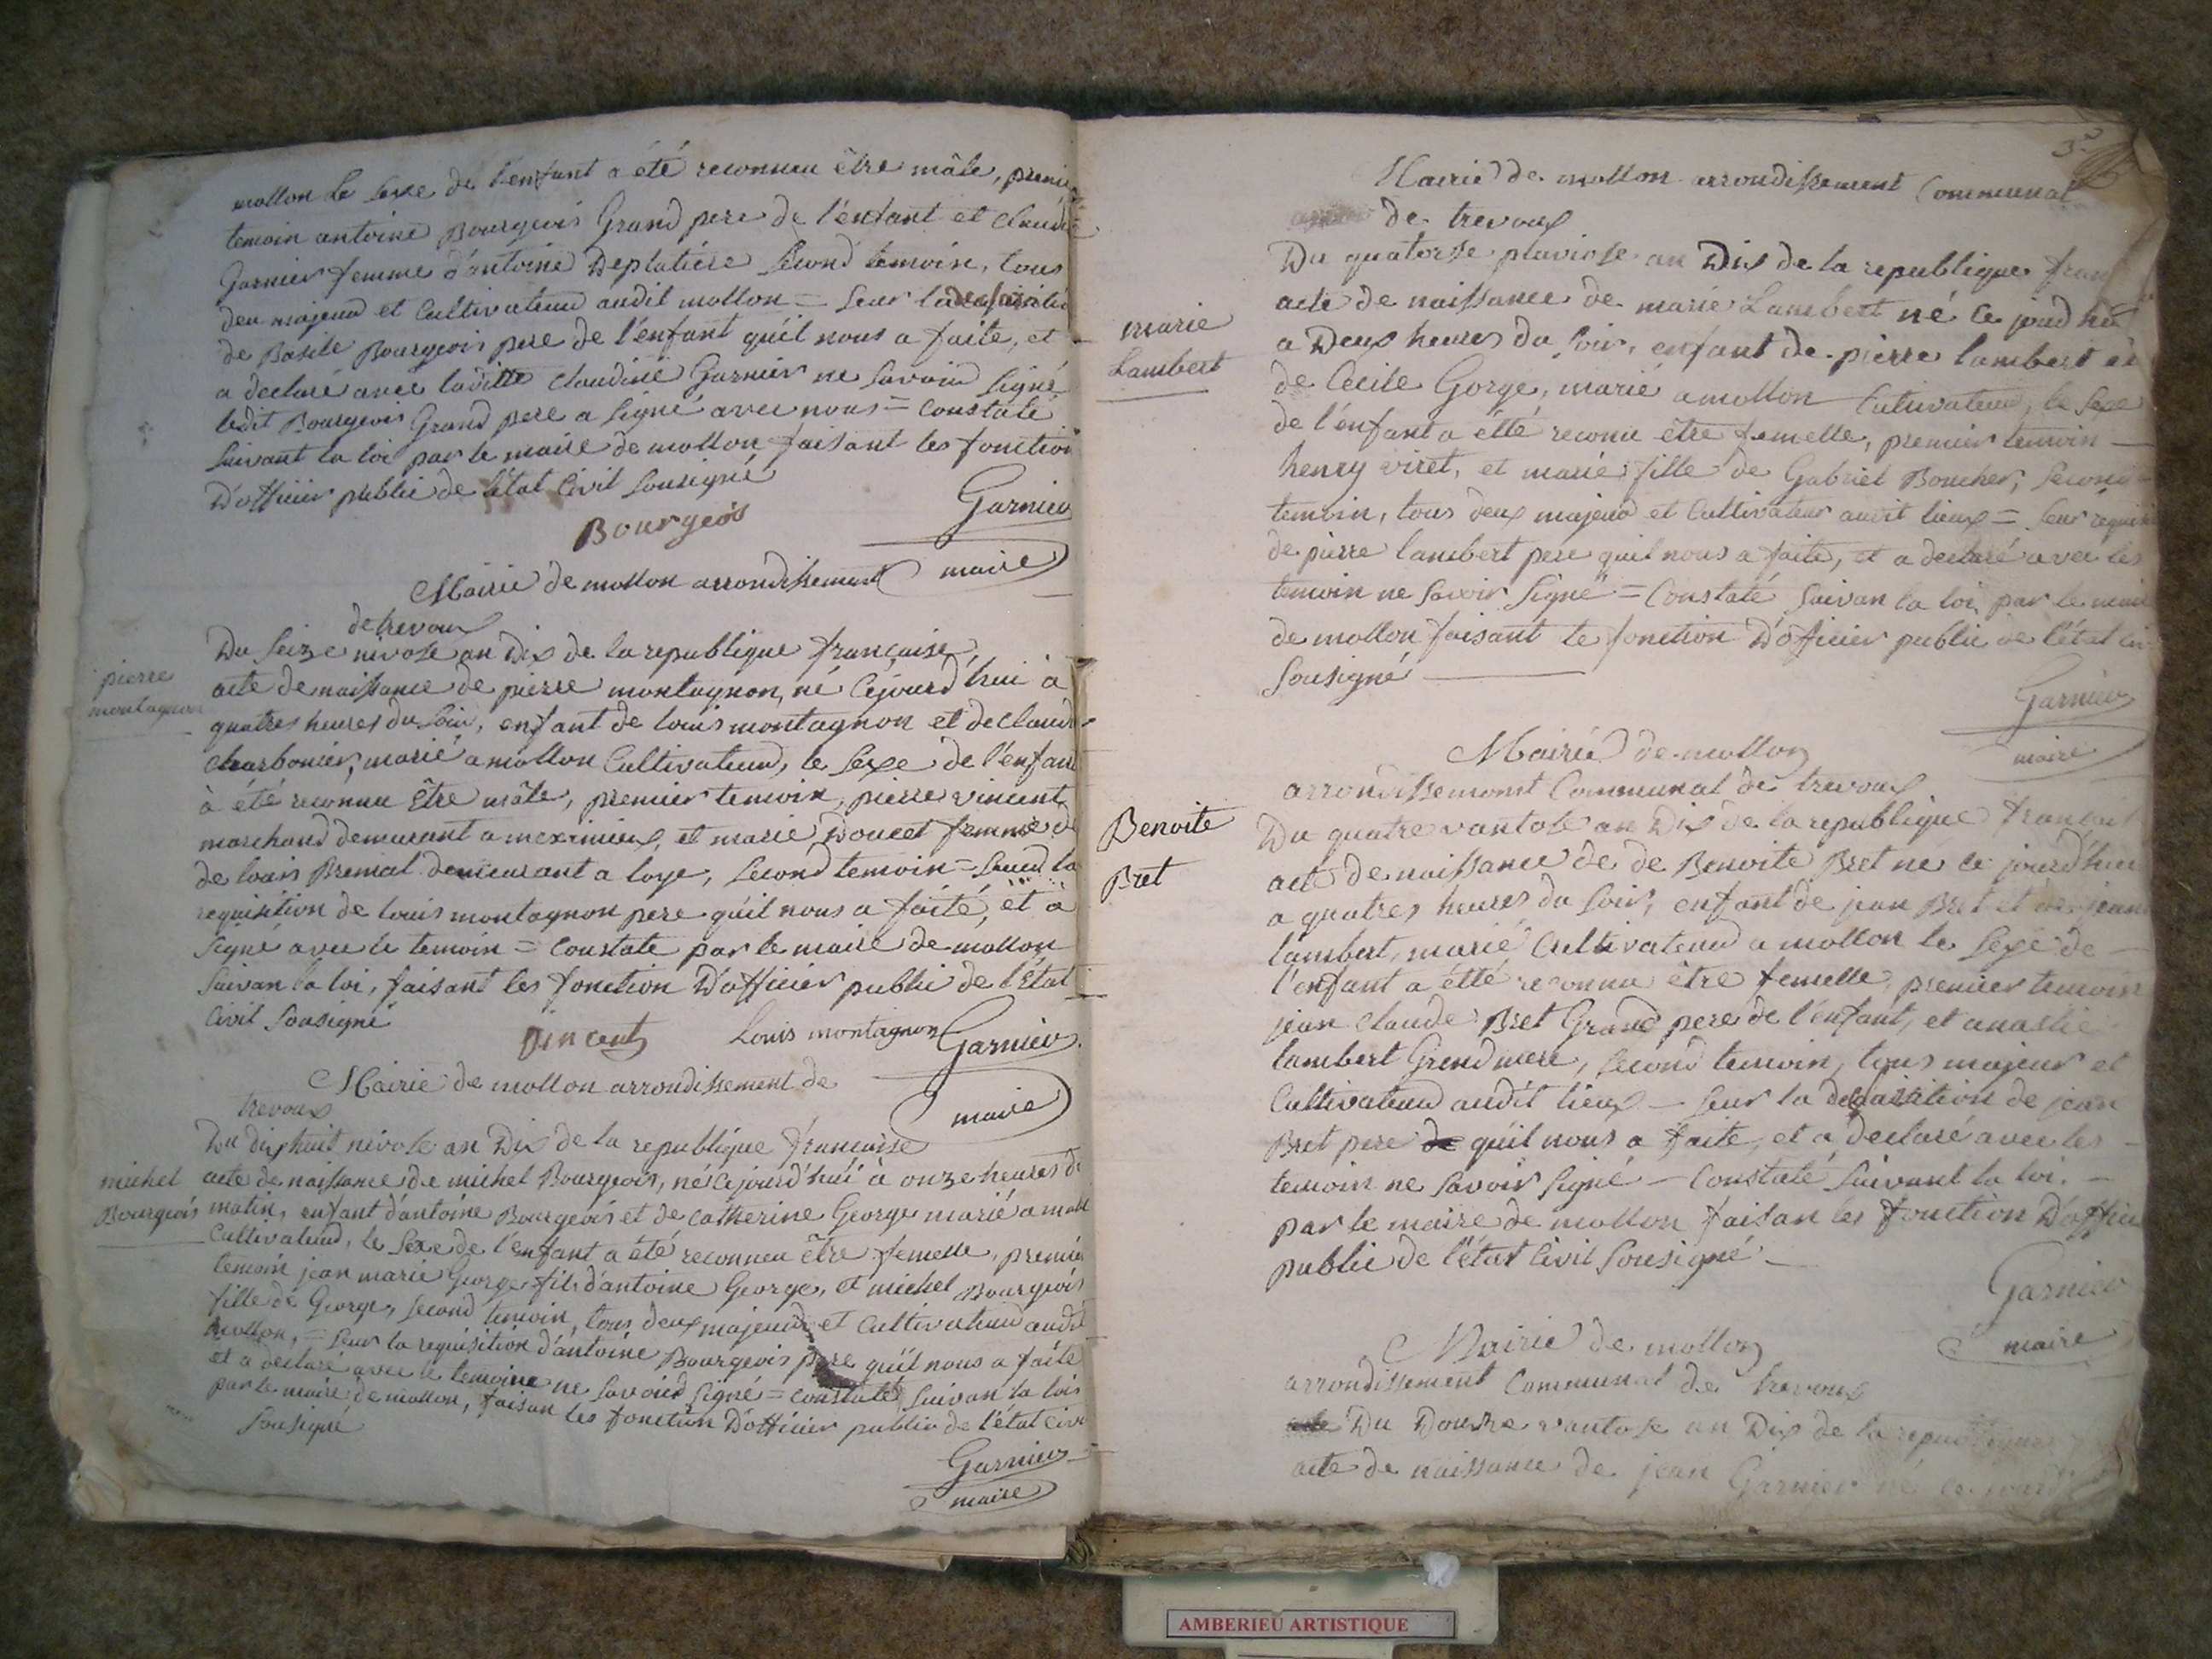 mollon le sexe de l'enfant a été reconnu être mâle, premier
temoin antoine Bourgeois Grand pere de l'enfant et Claudine
Garnier femme d'antoine Deplatiere second temoin, tous
deu majeur et Cultivateur audit mollon = seur la
de Basile Bourgeois pere de l'enfant quil nous a faite, et
a declaré avec laditte Claudine Garnier ne savoir signé
ledit Bourgeois Grand pere a signé avec nous = Constaté
suivant la loi par le maire de mollon faisant les fonction
D'officier public de l'état Civil sousigné
Bourgeois
Garnier
maire
Mairie de mollon arrondissement
de trevoux
Du seize nivose an Dix de la republique française
pierre
montagnon
acte de naissance de pierre montagnon, né Cejourd'hui à
quatres heures du soir, enfant de louis montagnon et de Claud
Charbonier, marié a mollon Cultivateur, le sexe de l'enfant
à été reconnu être mâle, premier temoin, pierre vincent
marchand demeurant a meximieux, et marie Doucet femme
de louis Bremat demeurant a loye, second temoin = la
requisition de louis montagnon pere quil nous a faité, et a
signé avec le temoin = Constate par le maire de mollon
suivan la loi, faisant les fonction D'officier public de l'état
Civil sousigné
Vincent
Louis montagnon
Garnier
maire
Mairie de mollon arrondissement de
trevoux
Du dixhuit nivose an Dix de la republique française
michel
Bourgeois
acte de naissance de michel Bourgeois, né Cejourd'hui à onze heures d
matin, enfant d'antoine Bourgeois et de Catherine George marié a moll
Cultivateur, le sexe de l'enfant a été reconnu être femelle, premier
temoin jean marie George fils d'antoine George, et michel Bourgeois
fille de George, second temoin, tous deux majeur et Cultivateur audit
mollon, = seur la requisition d'antoine Bourgeois pere quil nous a faite
et a declare avec le temoine ne savoir signé = constaté suivan la lois
par le maire de mollon, faisan les fonction D'officier public de l'état Civi
sousigné
Garnier
maire
3
Mairie de mollon arrondissement Communal
de trevoux
Du quatorse pluviose an Dix de la republique fran
marie
Lambert
acte de naissance de marie Lambert né Ce jourd hui
a Deux heures du soir, enfant de pierre lambert et
de Cecile Gorge, marié a mollon Cultivateur, le sexe
de l'énfant a étté reconu être femelle, premier temoin
henry viret, et marie fille de Gabriel Boucher, second
temoin, tous deux majeur et Cultivateur audit lieux = seur requi
de pierre lambert pere quil nous a faite, et a declaré avec les
temoin ne savoir signé = Constaté suivan la loi par le maire
de mollon faisant le fonction D'officier public de l'état Ci
sousigné
Garnier
maire
Mairie de mollon
arrondissement Communal de trevoux
Benoite
Bret
Du quatre vantose an Dix de la republique françai
acte de naissance de de Benoite Bret né ce jourd'hui
a quatres heures du soir, enfant de jean Bret et de jean
lambert, marié Cultivateur a mollon le sexe de
l'enfant a étté reconnu être femelle, premier temoin
jean Claude Bret Grand pere de l'enfant, et
lambert Grend mere, second temoin, tous majeur et
Cultivateur audit lieux — seur la de jean
Bret pere de quil nous a faite, et a declaré avec les
temoin ne savoir signé — Constaté suivant la loi.
par le maire de mollon faisan les fonction D'offici
public de l'état Civil sousigné
Garnier
maire
Mairie de mollon
arrondissement Communal de trevoux
Du Douse vantose an Dix de la republique
acte de naissance de jean Garnier né ce jourd
AMBERIEU ARTISTIQUE